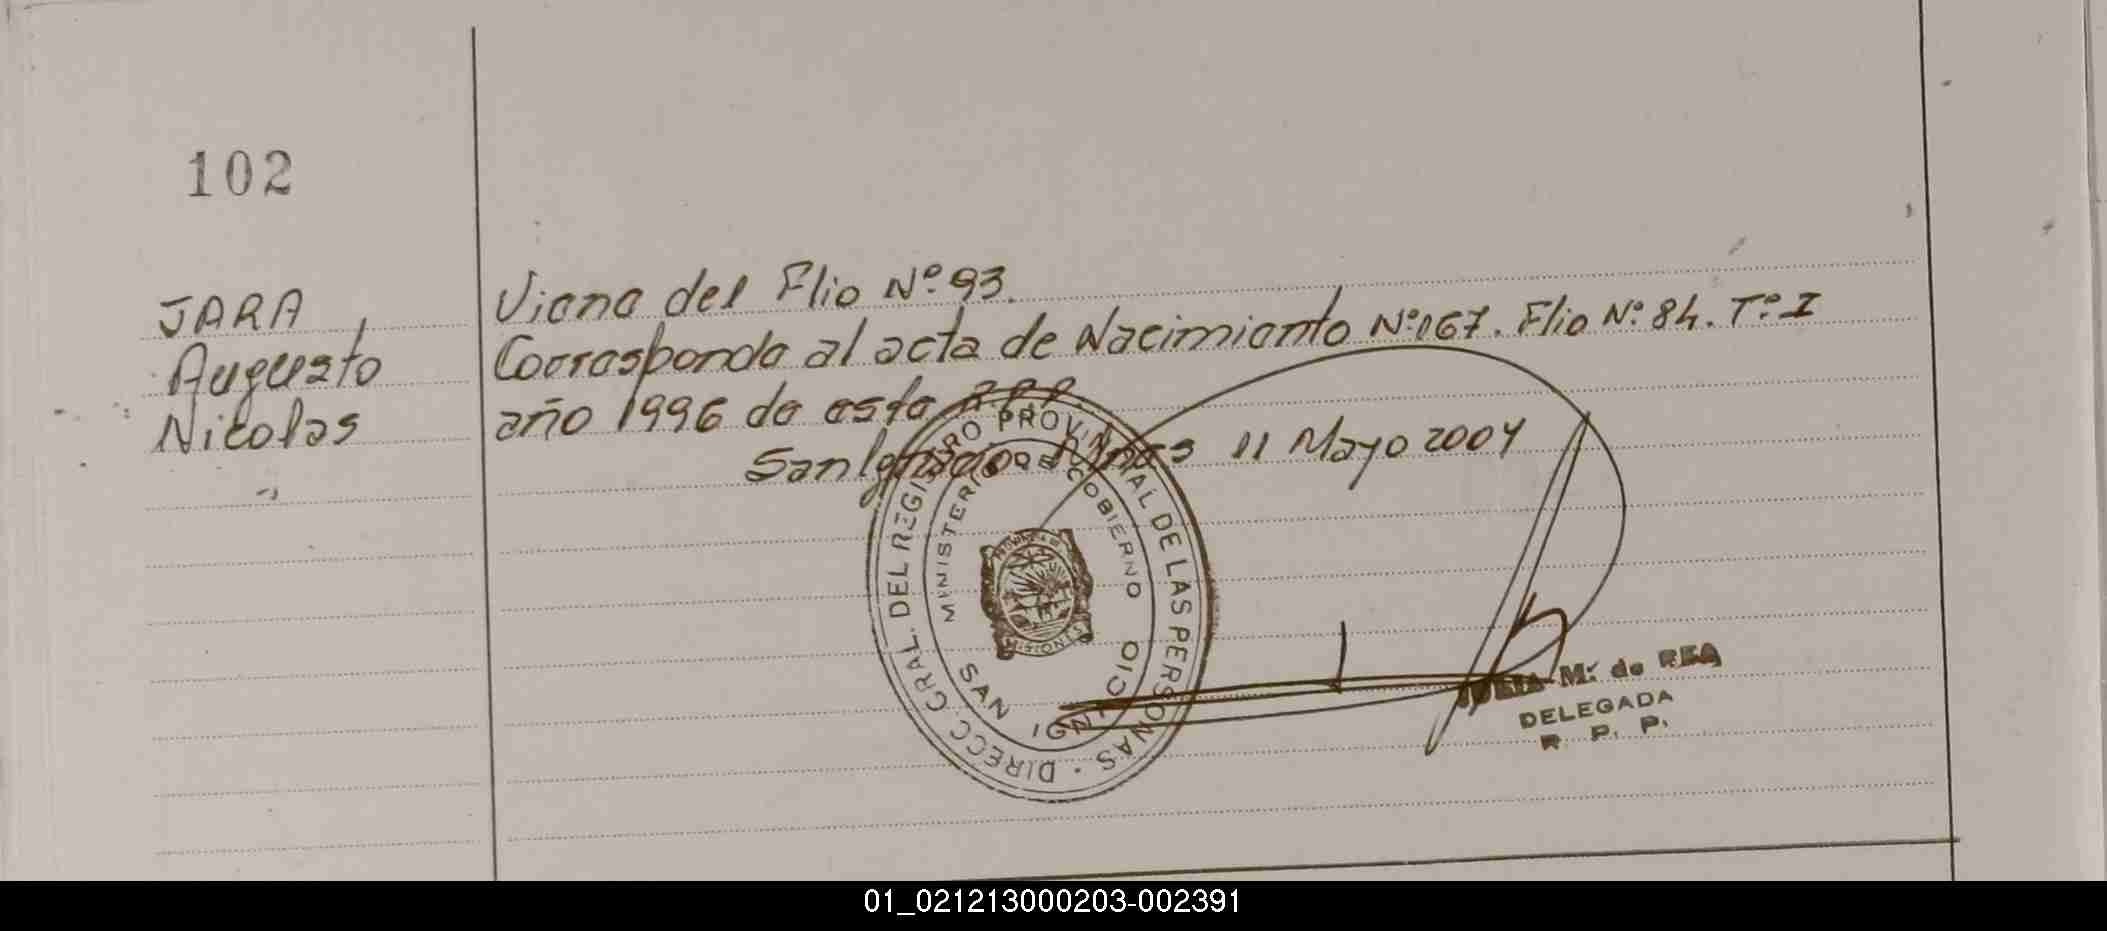 102
JARA
Augusto
Nicolas
Viene del Flio Nº 93.
Corresponde al acta de Nacimiento Nº 167. Flio Nº 84. Tº I
año 1996 de esta RPP
San Ignacio, Mnes 11 Mayo 2004
DIRECC. GRAL. DEL REGISTRO PROVINCIAL DE LAS PERSONAS
MINISTERIO DE GOBIERNO
SAN IGNACIO
PROVINCIA DE
MISIONES
Mª de REA
DELEGADA
R. P. P.
01_021213000203-002391